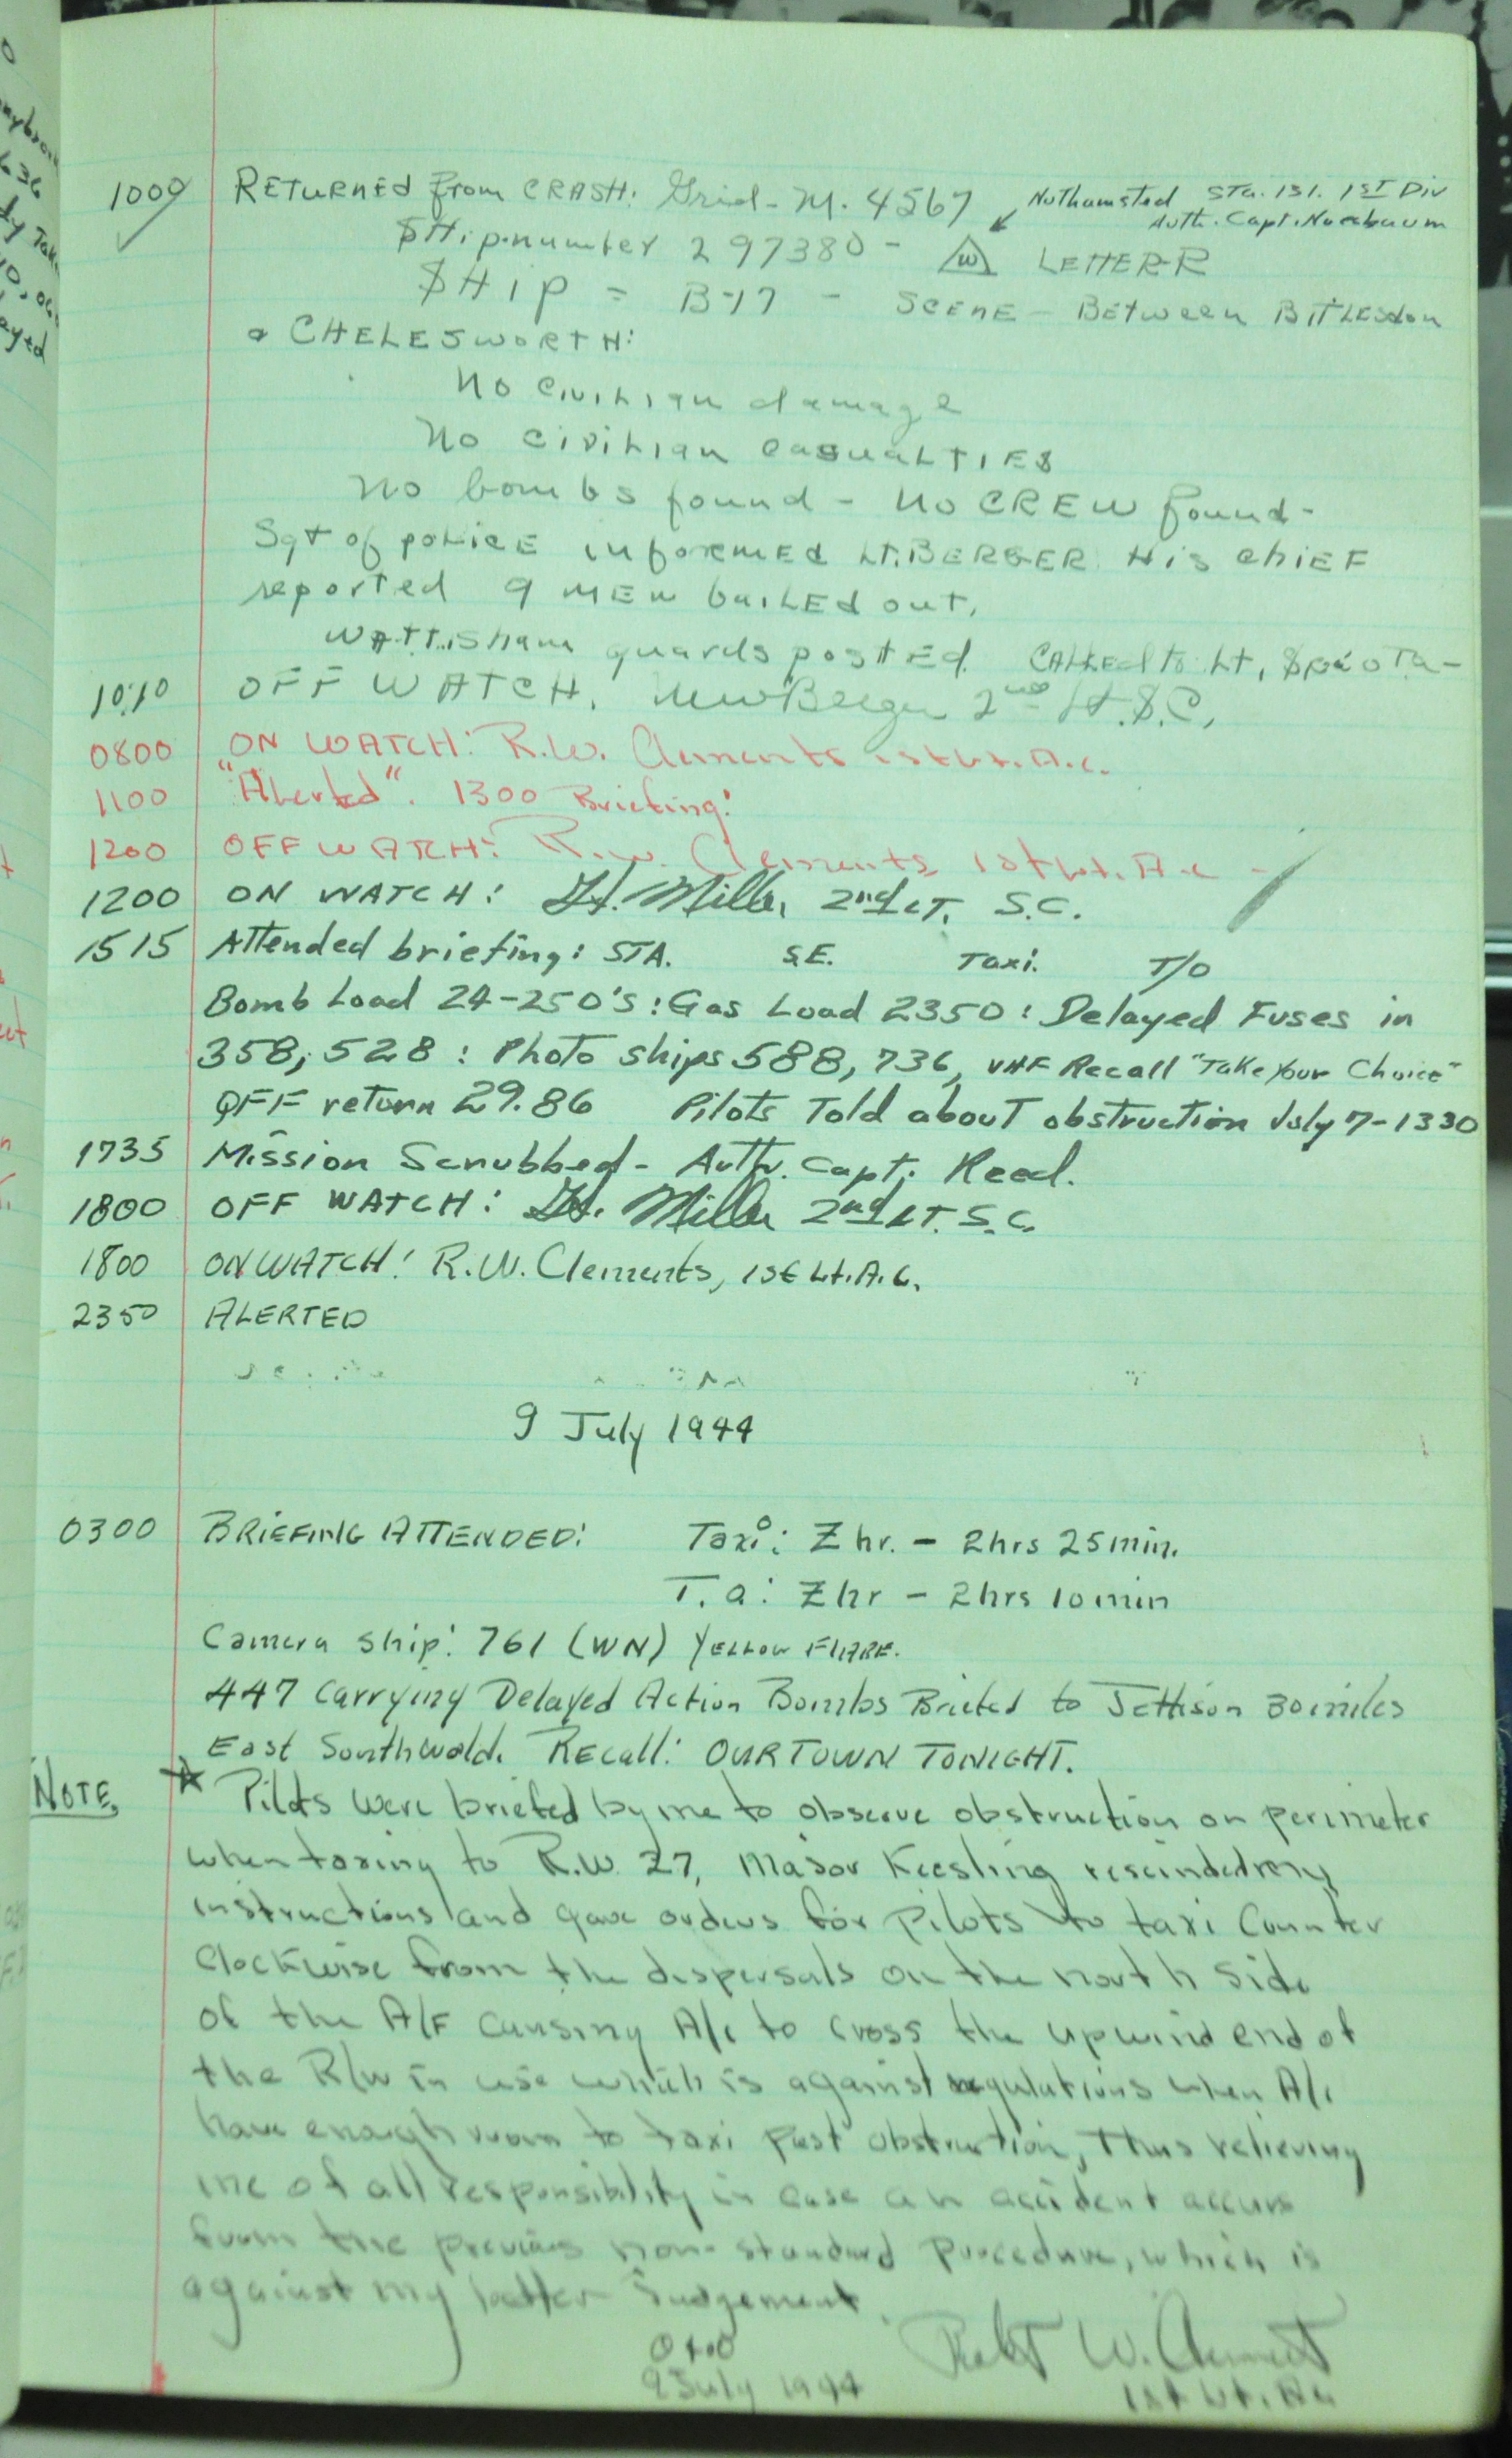 1000 RETURNED From CRASH: Grid - M. 4567 Nuthamsted STa. 131. 1ST Div
Auth. Capt. Nusbaum
SHip number 297380 - W LETTER R
SHIP = B-17 - SCENE - BETween BITLESdon
& CHELESWORTH:
No Civilian damage
No Civilian casuaLTIES
No bombs found - No CREW found -
Sgt of poLicE informEd Lt. BERGER His chiEF
reported 9 MEN baiLEd out.
WATTisham guards postEd. CALLEd to Lt,
1010 OFF WATCH. Berger 2nd Lt. S.C.
0800 ON WATCH: R.W. Clements 1st Lt. A.C.
1100 "Alerted". 1300 Briefing:
1200 OFF WATCH: R.W. Clements 1st Lt. A.C -
1200 ON WATCH: Miller 2nd LT. S.C.
1515 Attended briefing: STA. S.E. Taxi. T/O
Bomb Load 24-250's: Gas Load 2350: Delayed Fuses in
358, 528: Photo ships 588, 736, VHF Recall "Take Your Choice"
QFF return 29.86 Pilots Told about obstruction July 7-1330
1735 Mission Scrubbed - Auth. Capt. Reed.
1800 OFF WATCH: Miller 2nd LT. S.C.
1800 ON WATCH! R.W. Clements, 1st Lt. A.C.
2350 ALERTED
9 July 1944
0300 BRIEFING ATTENDED: Taxi: Z hr. - 2hrs 25min.
T.O: Z hr - 2hrs 10min
Camera Ship: 761 (WN) YELLOW FLARE.
447 Carrying Delayed Action Bombs Briefed to Jettison 30 miles
East Southwold. Recall: OUR TOWN TONIGHT.
NOTE. Pilots were briefed by me to observe obstruction on perimeter
when taxing to R.W. 27, Major Keesling rescinded my
instructions and gave orders for Pilots to taxi Counter
Clockwise from the dispersals on the north side
of the A/F causing A/c to cross the upwind end of
the R/W in use which is against regulations when A/c
have enough room to taxi past obstruction, thus relieving
me of all responsibility in case an accident occurs
from the previous non-standard procedure, which is
against my better judgement.
9 July 1944 Robt W. Clements
1st Lt. AC